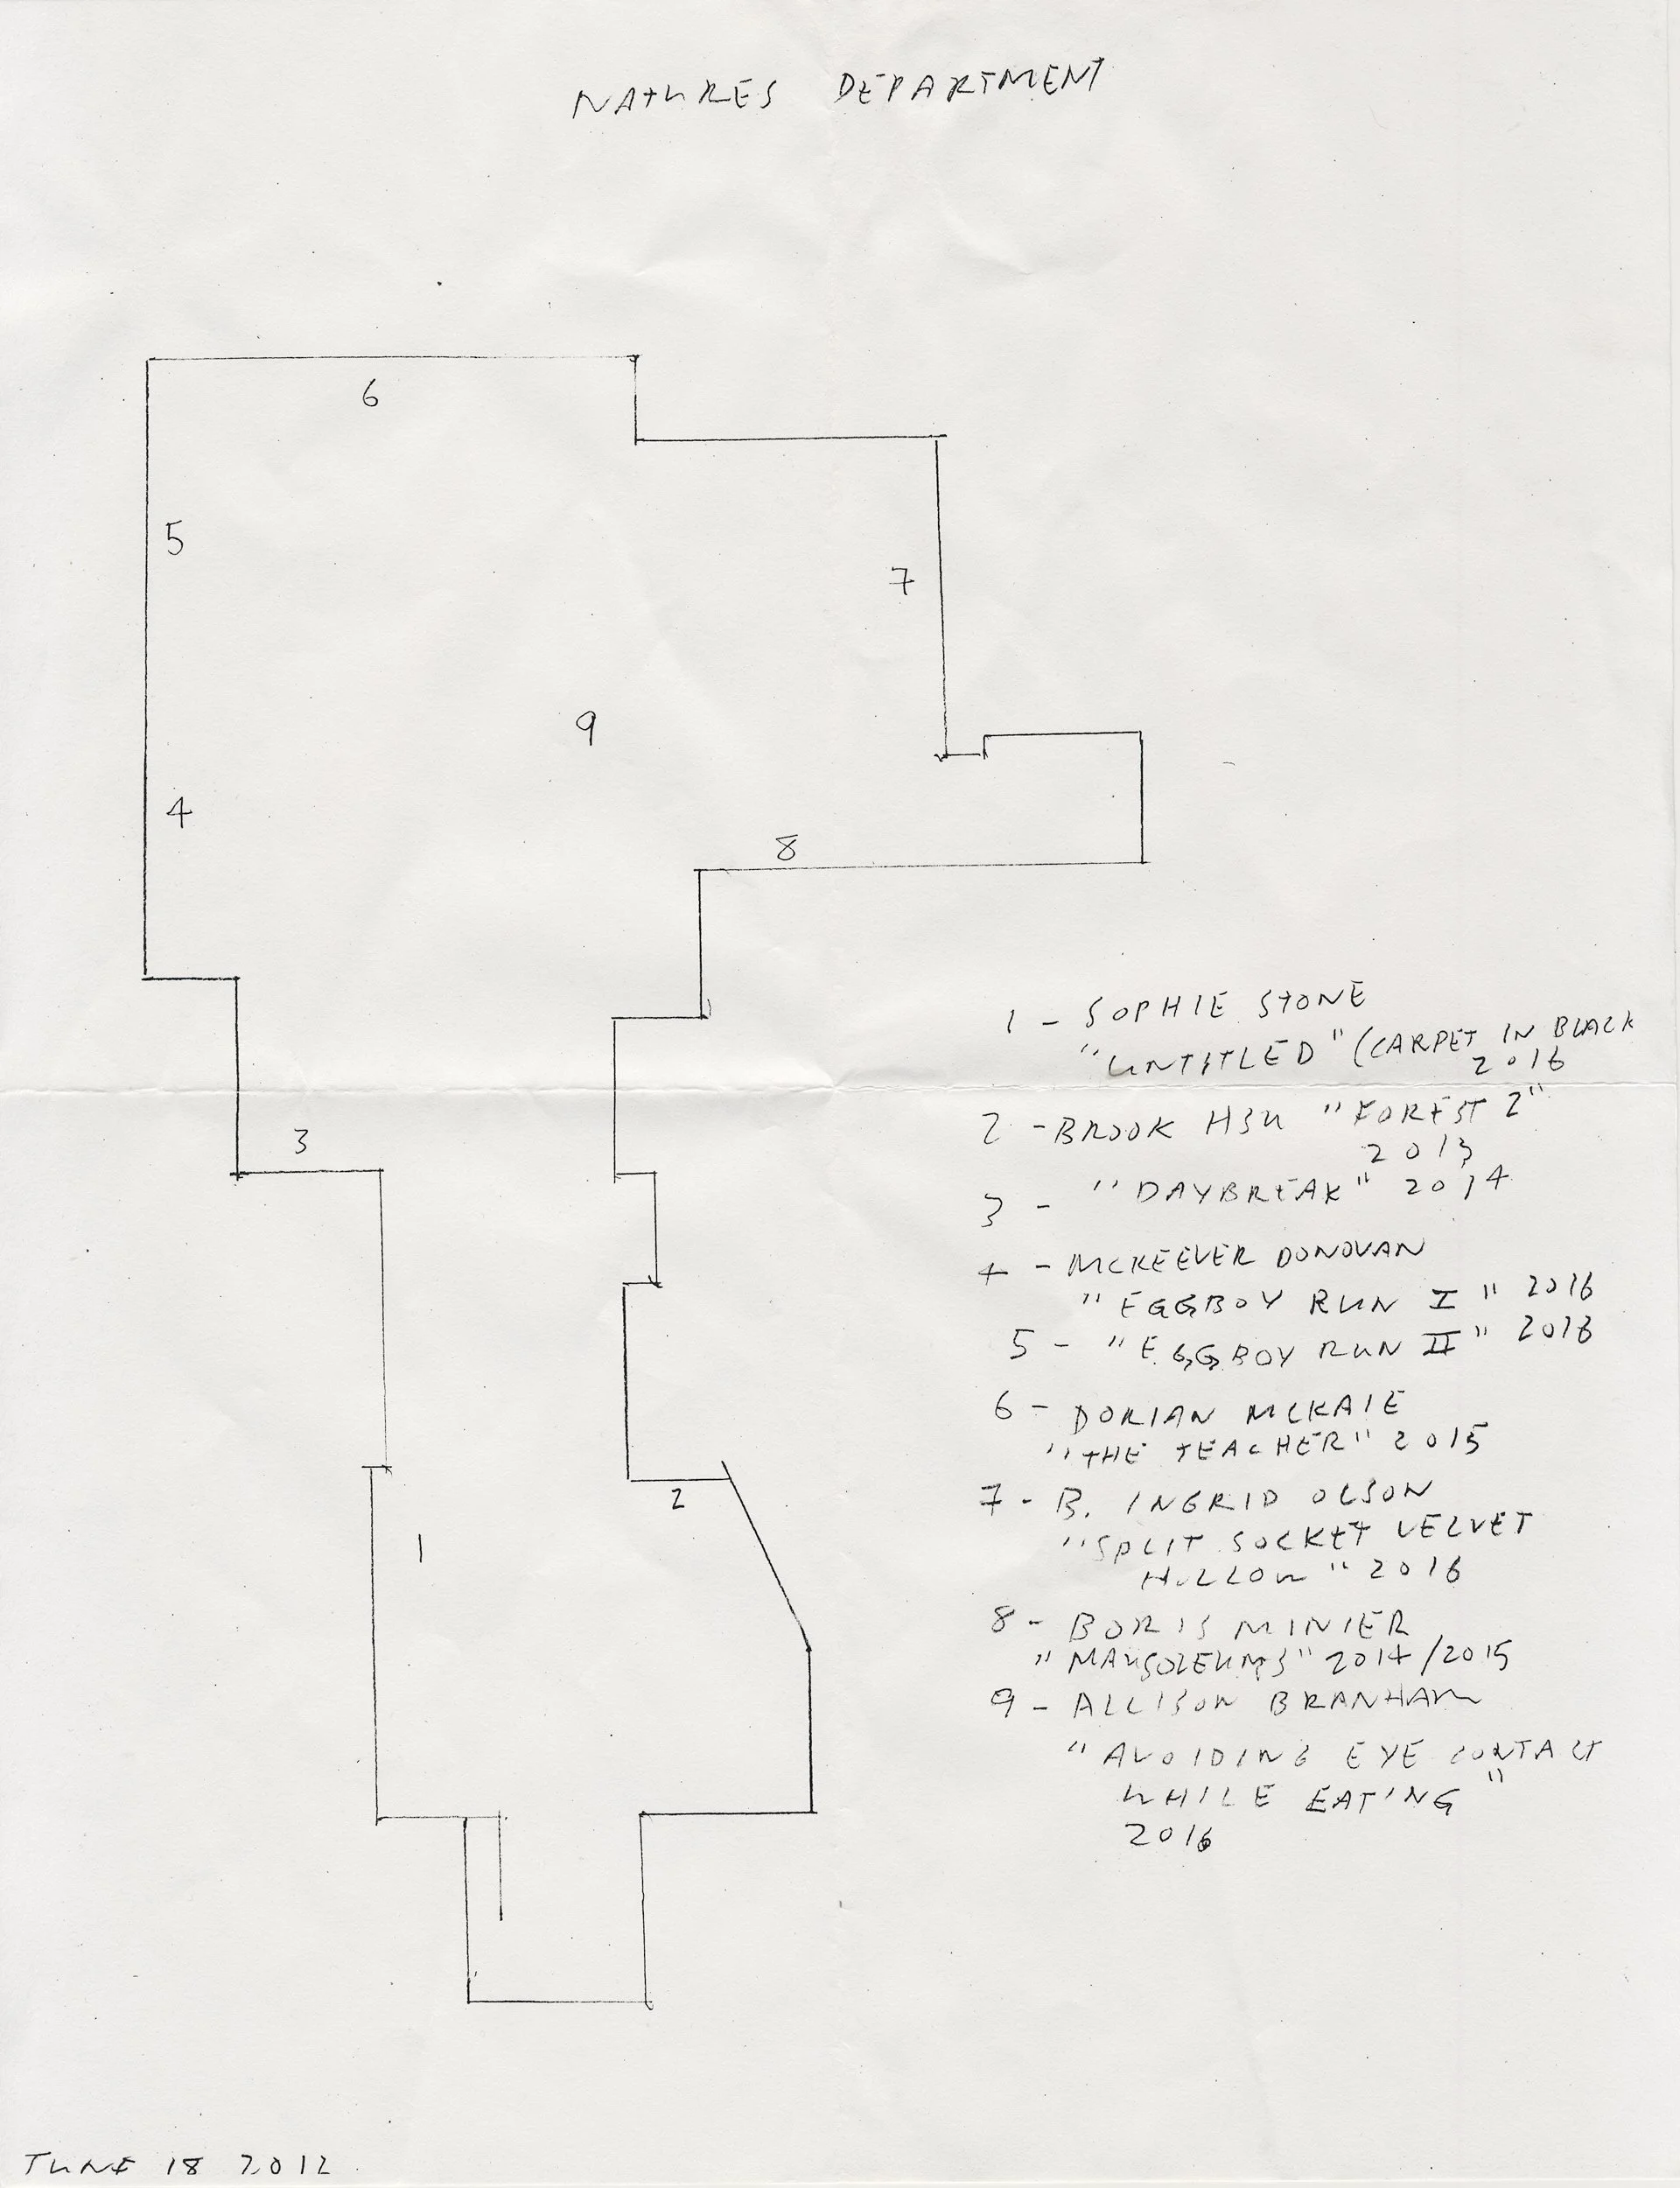 NATURES DEPARTMENT
6
5
7
9
4
8
3
2
1
1 - SOPHIE STONE
"UNTITLED" (CARPET IN BLACK
2016
2 - BROOK HSU "FOREST 2"
2013
3 - "DAYBREAK" 2014
4 - MCKEEVER DONOVAN
"EGGBOY RUN I" 2016
5 - "EGGBOY RUN II" 2016
6 - DORIAN MCKAIE
"THE TEACHER" 2015
7 - B. INGRID OLSON
"SPLIT SOCKET VELVET
HOLLOW" 2016
8 - BORIS MINIER
"MAUSOLEUMS" 2014/2015
9 - ALLISON BRANHAM
"AVOIDING EYE CONTACT
WHILE EATING"
2016
JUNE 18 2012